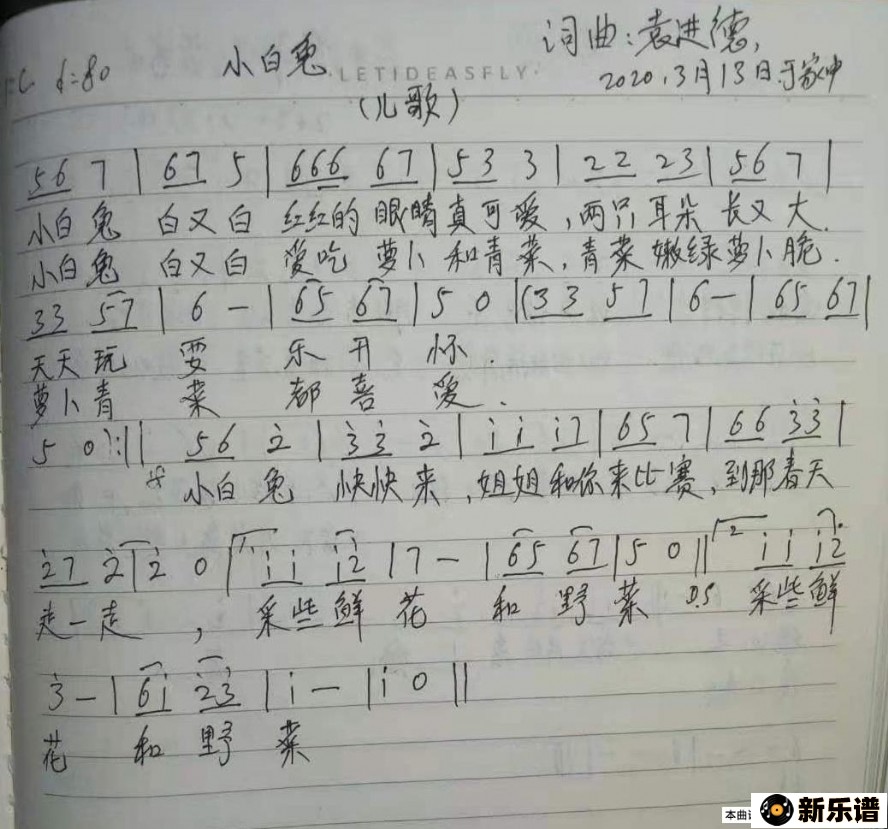 词曲:袁进德,
小白兔
LETIDEASFLY
=C ♩=80
2020.3月13日于家中
(儿歌)
56 7 | 67 5 | 666 67 | 53 3 | 22 23 | 56 7 |
小白兔 白又白 红红的 眼睛真可爱,两只耳朵 长又大.
小白兔 白又白 爱吃 萝卜 和青菜,青菜 嫩绿萝卜脆.
33 57 | 6 - | 65 67 | 5 0 | (33 57 | 6 - | 65 67 |
天天玩 耍 乐开 怀
萝卜青 菜 都喜 爱.
5 0):|| 56 2̇ | 3̇3̇ 2̇ | i i i7 | 65 7 | 66 3̇3̇ |
小白兔 快快来,姐姐和你来比赛,到那春天
2̇7 2̇ | 2̇ 0 | 1. i i i2̇ | 7 - | 65 67 | 5 0 || 2 i i i2̇
走一走, 采些鲜 花 和 野 菜 D.S 采些鲜
3̇ - | 6i 2̇3̇ | i - | i 0 ||
花 和 野 菜
本曲
新乐谱